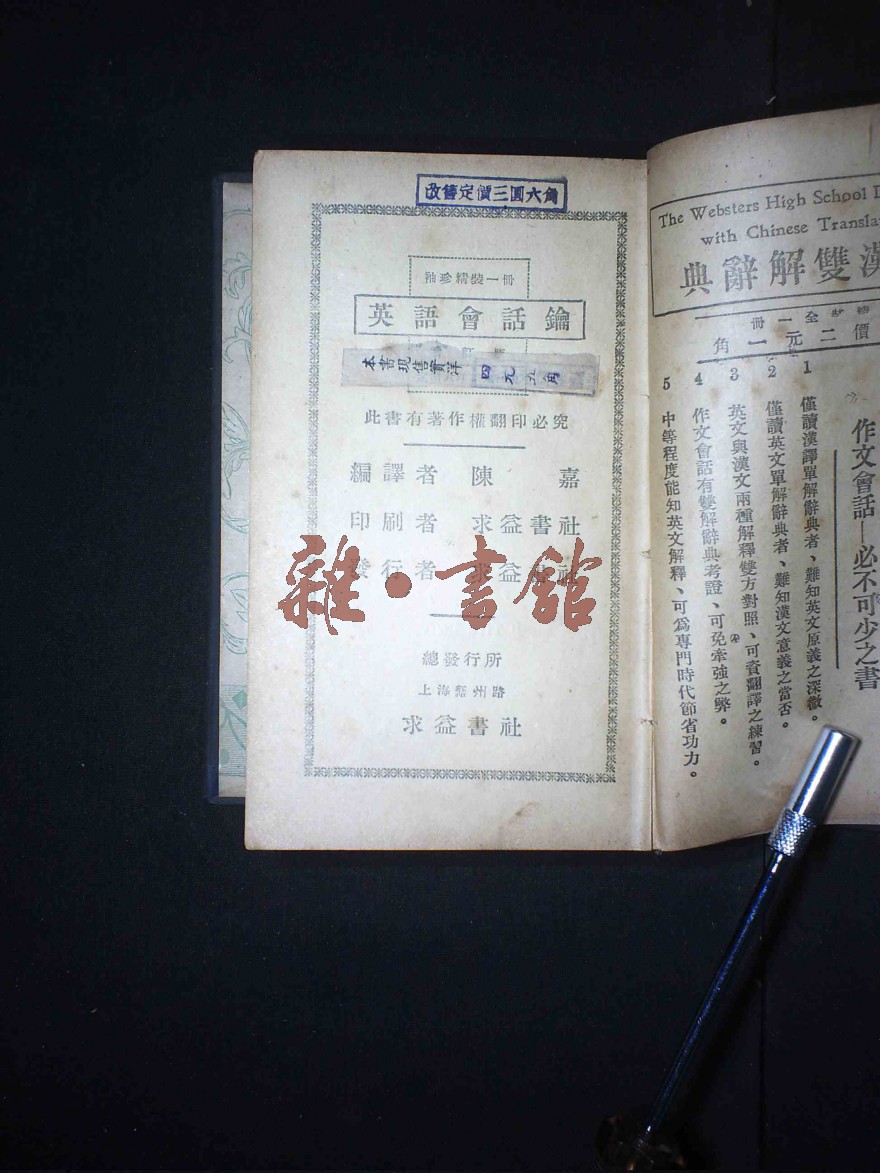 改售定價三圓六角
袖珍精裝一冊
英語會話鑰
本書現售實洋
四元九角
此書有著作權翻印必究
編譯者 陳嘉
印刷者 求益書社
發行者 求益書社
雜·書館
總發行所
上海福州路
求益書社
The Websters High School D
with Chinese Transla
漢雙解辭典
裝全一冊
價二元一角
作文會話—必不可少之書
1 僅讀漢譯單解辭典者、難知英文原義之深微。
2 僅讀英文單解辭典者、難知漢文意義之當否。
3 英文與漢文兩種解釋雙方對照、可資翻譯之練習。
4 作文會話有雙解辭典考證、可免牽強之弊。
5 中等程度能知英文解釋、可爲專門時代節省功力。